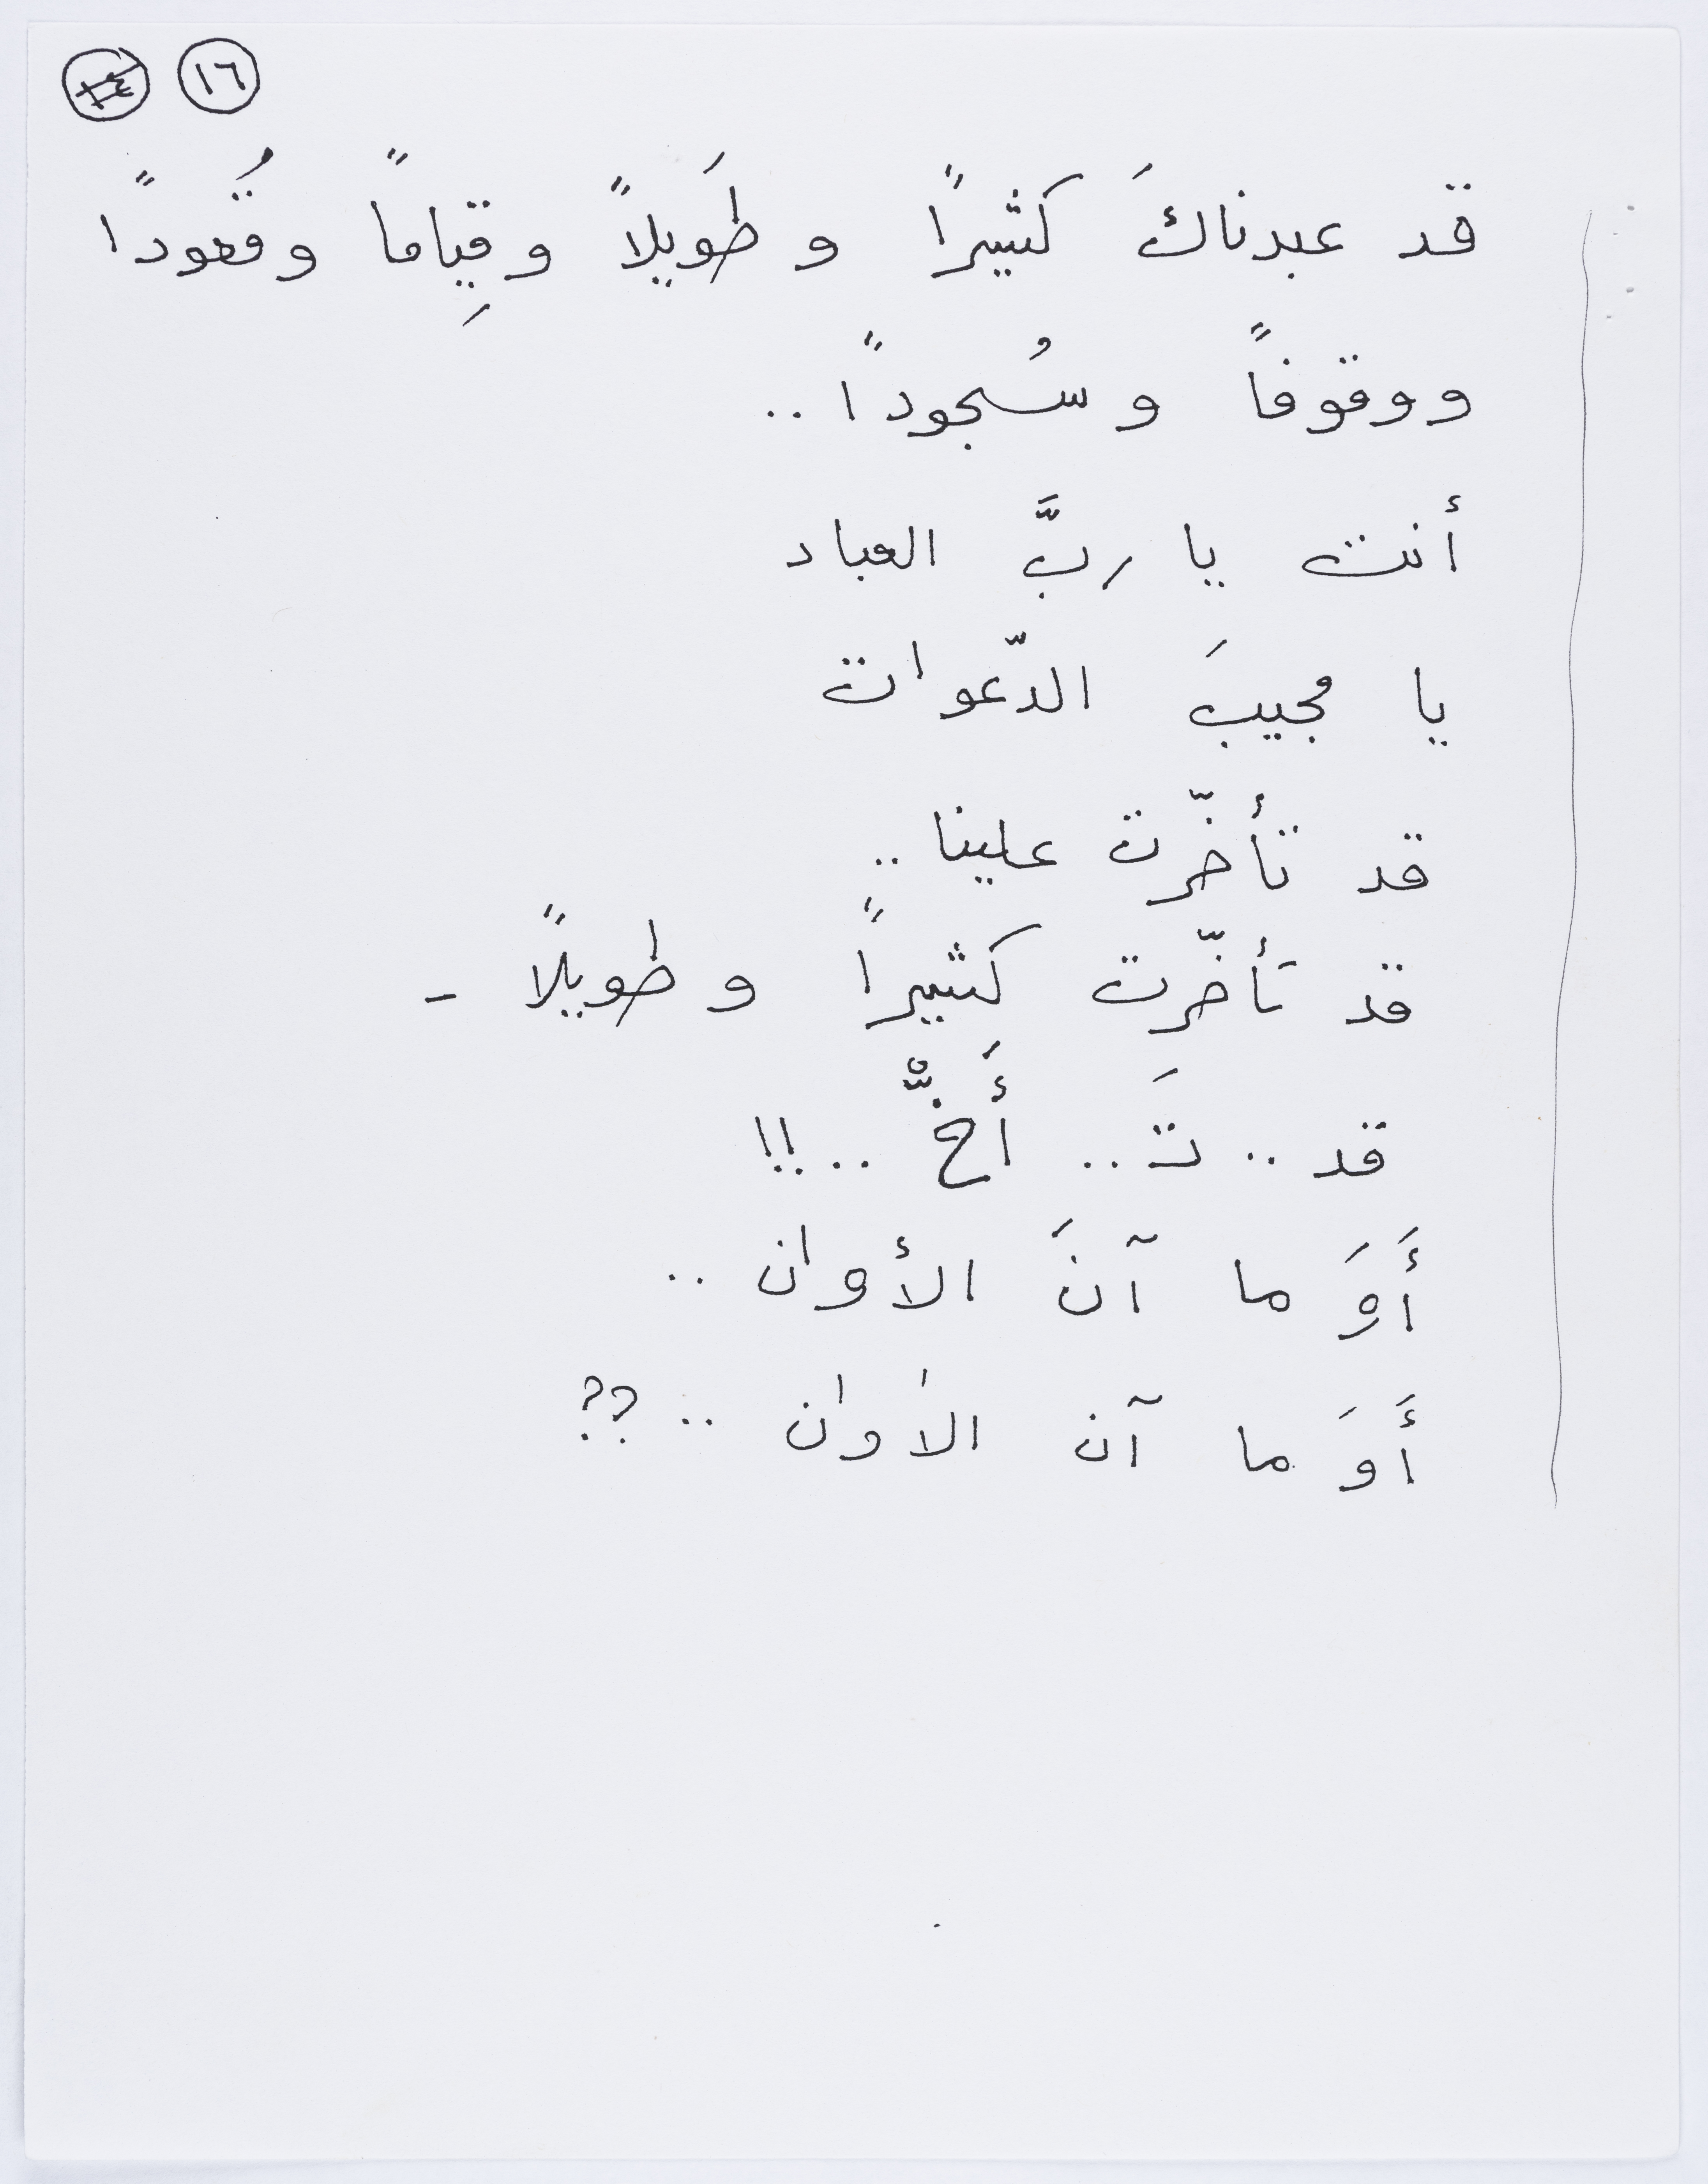 ١٦
قد عبدناكَ كثيرًا و طَويلاً و قِياماً و قُعودًا
و وقوفاً و سُجودًا ..
أنت يا ربَّ العباد
يا مجيبَ الدّعوات
قد تأخّرت علينا ..
قد تأخّرت كثيرًا و طويلًا -
قد .. تَ .. أَخّْ .. !!
أَوَ ما آنَ الأوان ..
أَوَ ما آن الأوان .. ؟؟